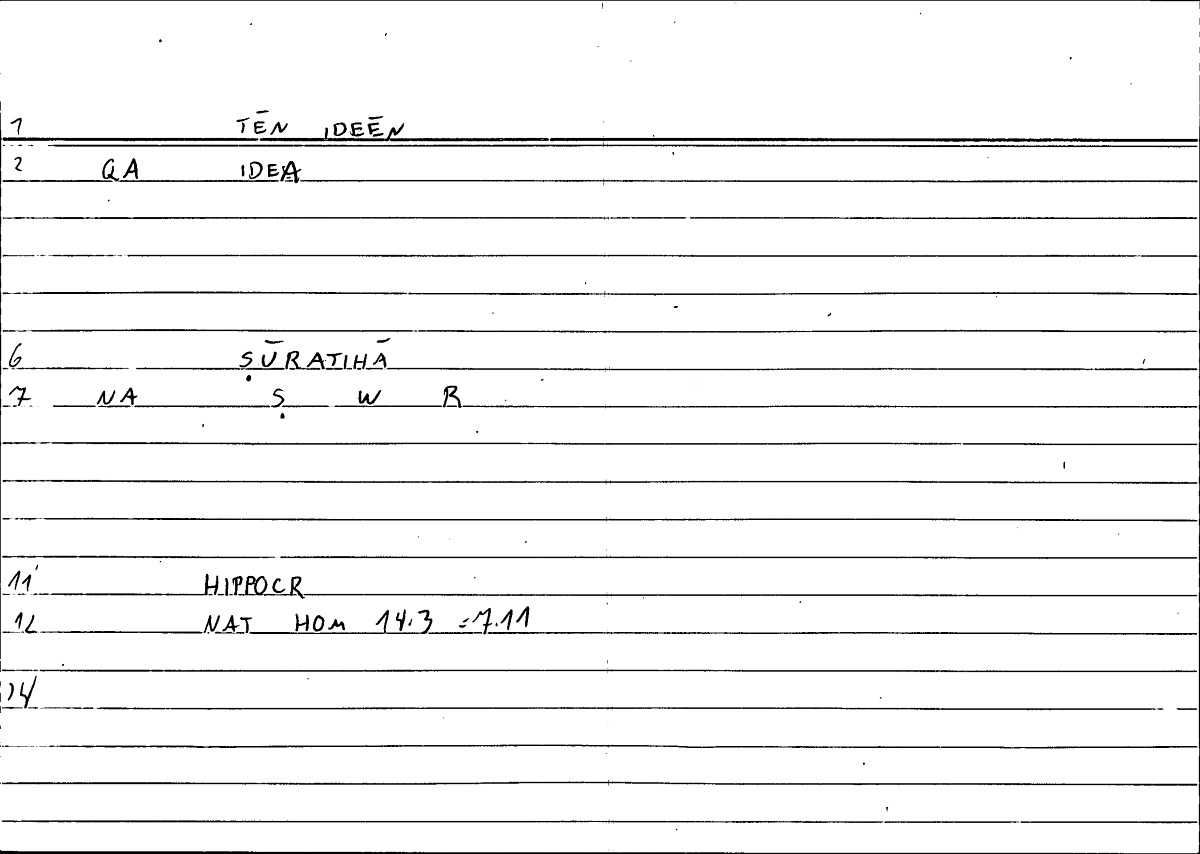 1 TĒN IDEĒN
2 QA IDEA
6 ṢŪRATIHĀ
7 NA Ṣ W R
11 HIPPOCR
12 NAT HOM 14.3 =7.11
14